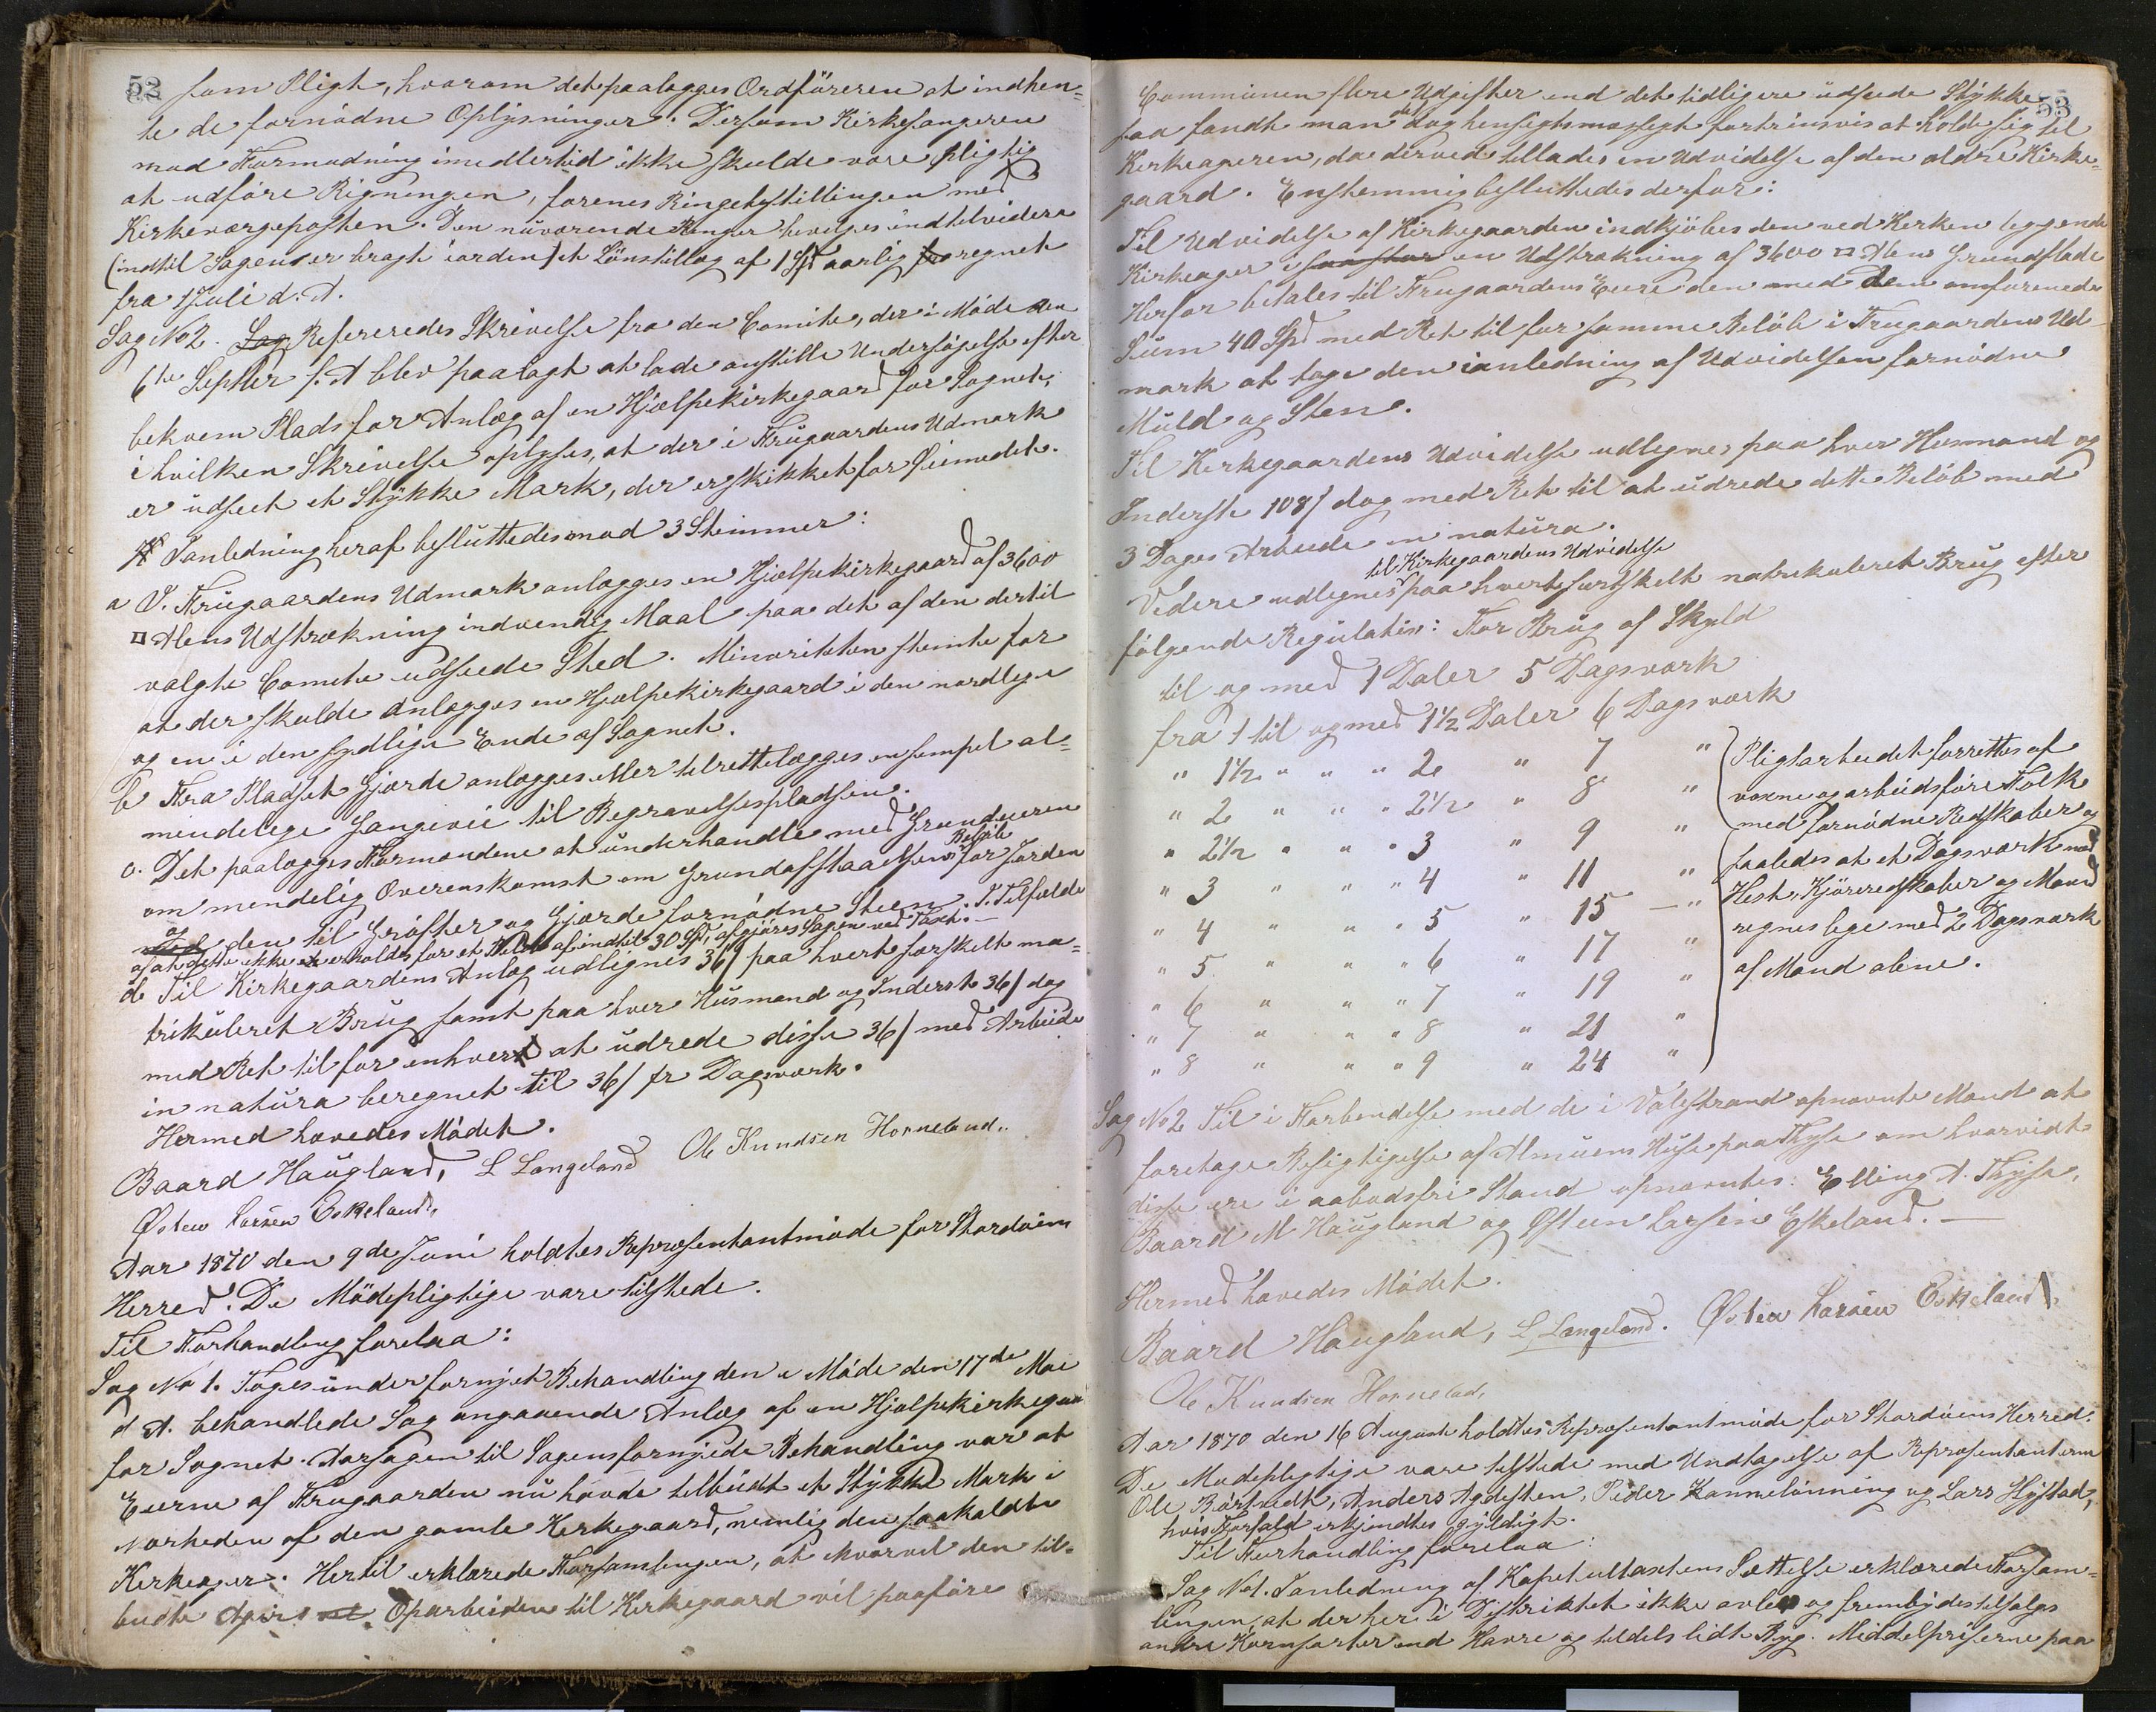 52
som Pligt, hvorom det paalægges Ordføreren at indhen=
te de fornødne Oplysninger. Dersom Kirkesangeren
mod Formodning imedlertid ikke skulde være pligtig
at udføre Rigningen, forenes Ringebestillingen med
Kirkeværgeposten. Den nuværende Ringer bevilges indtilvidere
(indtil Sagen er bragt iorden) et Lønstillæg af 1 Spd aarlig regnet
fra 1 Juli d. A.
Sag No 2. Sag Refereredes Skrivelse fra den Comite, der i Møde den
6te Septber f. A blev paalagt at lade anstille Undersøgelse efter
bekvem Plads for Anlæg af en Hjælpekirkegaard for Sognet,
i hvilken Skrivelse oplyses, at der i Frugaardens Udmark
er udseet et Stykke Mark, der er skikket for Øiemedet.
I anledning heraf besluttedes mod 3 Stemmer:
a I. Frugaardens Udmark anlægges en Hjælpekirkegaard af 3600
□ Alens Udstrækning indvendig Maal paa det af den dertil
valgte Comite udseede Sted. Minoriteten stemte for
at der skulde anlægges en Hjælpekirkegaard i den nordlige
og en i den sydlige Ende af Sognet.
b Fra Pladsets Gjærde anlægges eller tilrettelægges en simpel al=
mindelige Gangevei til Begravelsespladsen.
c. Det paalægges Formændene at underhandle med Grundeieren
om mindelig Overenskomst om Grundafstaaelsens Beløb for Jorden
og den til Grøfter og Gjærde fornødne Steen. I. Tilfælde
af at dette ikke erholdes for et Beløb af indtil 30 Spd, afgjøres Sagen ved Taxt. —
d Til Kirkegaardens Anlæg udlignes 36 ſ paa hvert særskelt ma=
trikuleret Brug samt paa hver Husmand og Inderste 36 ſ dog
med Ret til for enhver at udrede disse 36 ſ med Arbeide
in natura beregnet til 36 ſ pr Dagsværk.
Hermed hævedes Mødet.
Baard Haugland, L Langeland Ole Knudsen Horneland..
Østen Larsen Eskeland,
Aar 1870 den 9de Juni holdtes Repræsentantmøde for Stordøens
Herred. De Mødepligtige vare tilstede.
Til Forhandling forelaa:
Sag No 1. Toges under fornyet Behandling den i Møde den 17de Mai
d A. behandlede Sag angaaende Anlæg af en Hjælpekirkegaa
for Sognet. Aarsagen til Sagens fornyede Behandling var at
Eierne af Frugaarden nu havde tilbudt et Stykke Mark i
Nærheden af den gamle Kirkegaard, nemlig den saakaldte
Kirkeager. Hertil erklærede Forsamlingen, at ihvorvel den til=
budte Agers Oparbeiden til Kirkegaard vil paaføre
53
Communen flere Udgifter end det tidligere udseede Stykke
saa fandt man det dog hensigtsmæssigt fortrinsvis at holde sig til
Kirkeageren, da derved tillades en Udvidelse af den ældre Kirke=
gaard. Enstemmig besluttedes derfor:
Til Udvidelse af Kirkegaarden indkjøbes den ved Kirken liggende
Kirkeager i en Udstrækning af 3600 □ Alens Grundflade
Herfor betales til Frugaardens Eiere den med dem omforenede
Sum 40 Spd med Ret til for samme Beløb i Frugaardens Ud
mark at tage den ianledning af Udvidelsen fornødne
Muld og Steen.
Til Kirkegaardens Udvidelse udlignes paa hver Husmand og
Inderste 108 ſ dog med Ret til at udrede dette Beløb med
3 Dages Arbeide in natura.
til Kirkegaardens Udvidelse
Videre udlignes paa hvert særskelt matrikuleret Brug efter
følgende Regulativ: For Brug af Skyld
til og med 1 Daler 5 Dagsværk
fra 1 til og med 1½ Daler 6 Dagsværk
" 1½ " " " 2 " 7 "
" 2 " " " 2½ " 8 "
" 2½ " " " 3 " 9 "
" 3 " " " 4 " 11 "
" 4 " " " 5 " 15 — "
" 5 " " " 6 " 17 "
" 6 " " " 7 " 19 "
" 7 " " " 8 " 21 "
" 8 " " " 9 " 24 "
Pligtarbeidet forrettes af
voxne og arbeidsføre Folk
med fornødne Redskaber og
saaledes at et Dagsværk med
Hest, Kjøreredskaber og Mand
regnes lige med 2 Dagsværk
af Mand alene.
Sag No 2 Til i Forbindelse med de i Valestrand opnævnte Mænd at
foretage Besigtigelse af Almuens Huse paa Thyse om hvorvidt
disse ere i aabodsfri Stand opnævntes: Elling A. Thyse,
Baard M Haugland og Østeen Larsen Eskeland. —
Hermed hævedes Mødet.
Baard Haugland, L Langeland. Østen Larsen Eskeland,
Ole Knudsen Horneland,
Aar 1870 den 16 August holdtes Repræsentantmøde for Stordøens Herred.
De Mødepligtige vare tilstede med Undtagelse af Repræsentanterne
Ole Børtvedt, Anders Agdesten, Peder Kannelønning og Lars Hystad,
hvis Forfald erkjendtes gyldigt.
Til Forhandling forelaa:
Sag No 1. Ianledning af Kapiteltaxtens Sættelse erklærede Forsam=
lingen, at der her i Distriktet ikke avles og frembydes tilsalgs
andre Kornsorter end Havre og tildels lidt Byg. Middelpriserne paa